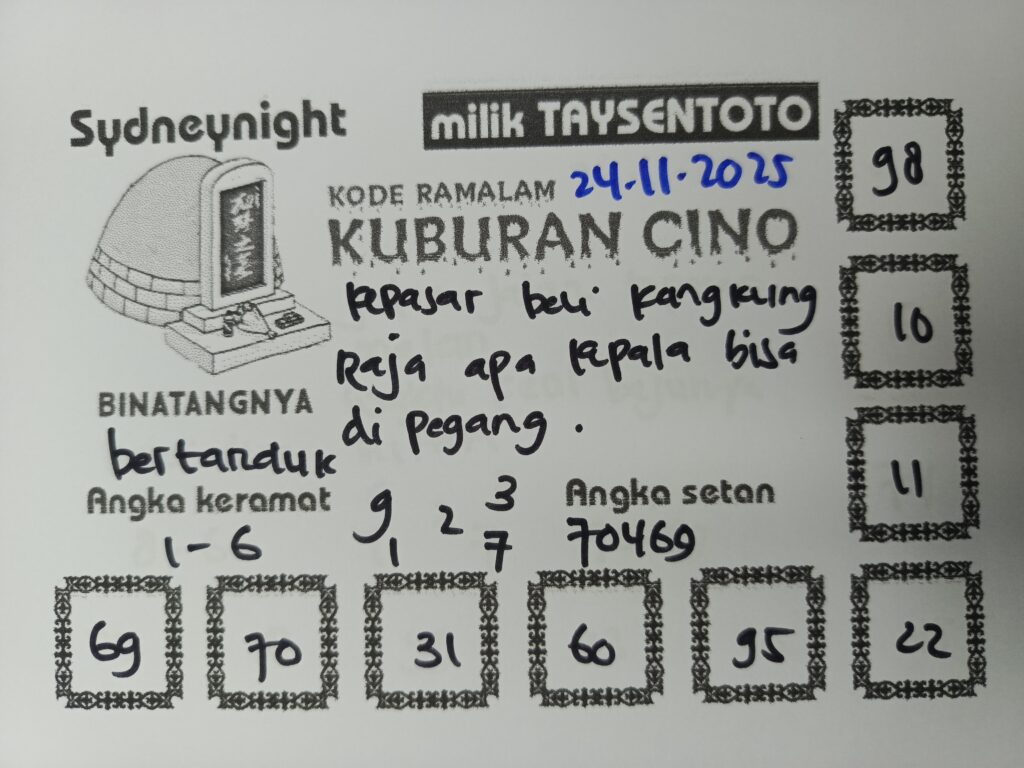 Sydneynight
milik TAYSENTOTO
KODE RAMALAM 24.11.2025
KUBURAN CINO
kepasar beli kangkung
Raja apa kepala bisa
di pegang.
BINATANGNYA
bertanduk
Angka keramat
1-6
9 2 3
1 7
Angka setan
70469
98
10
11
69 70 31 60 95 22